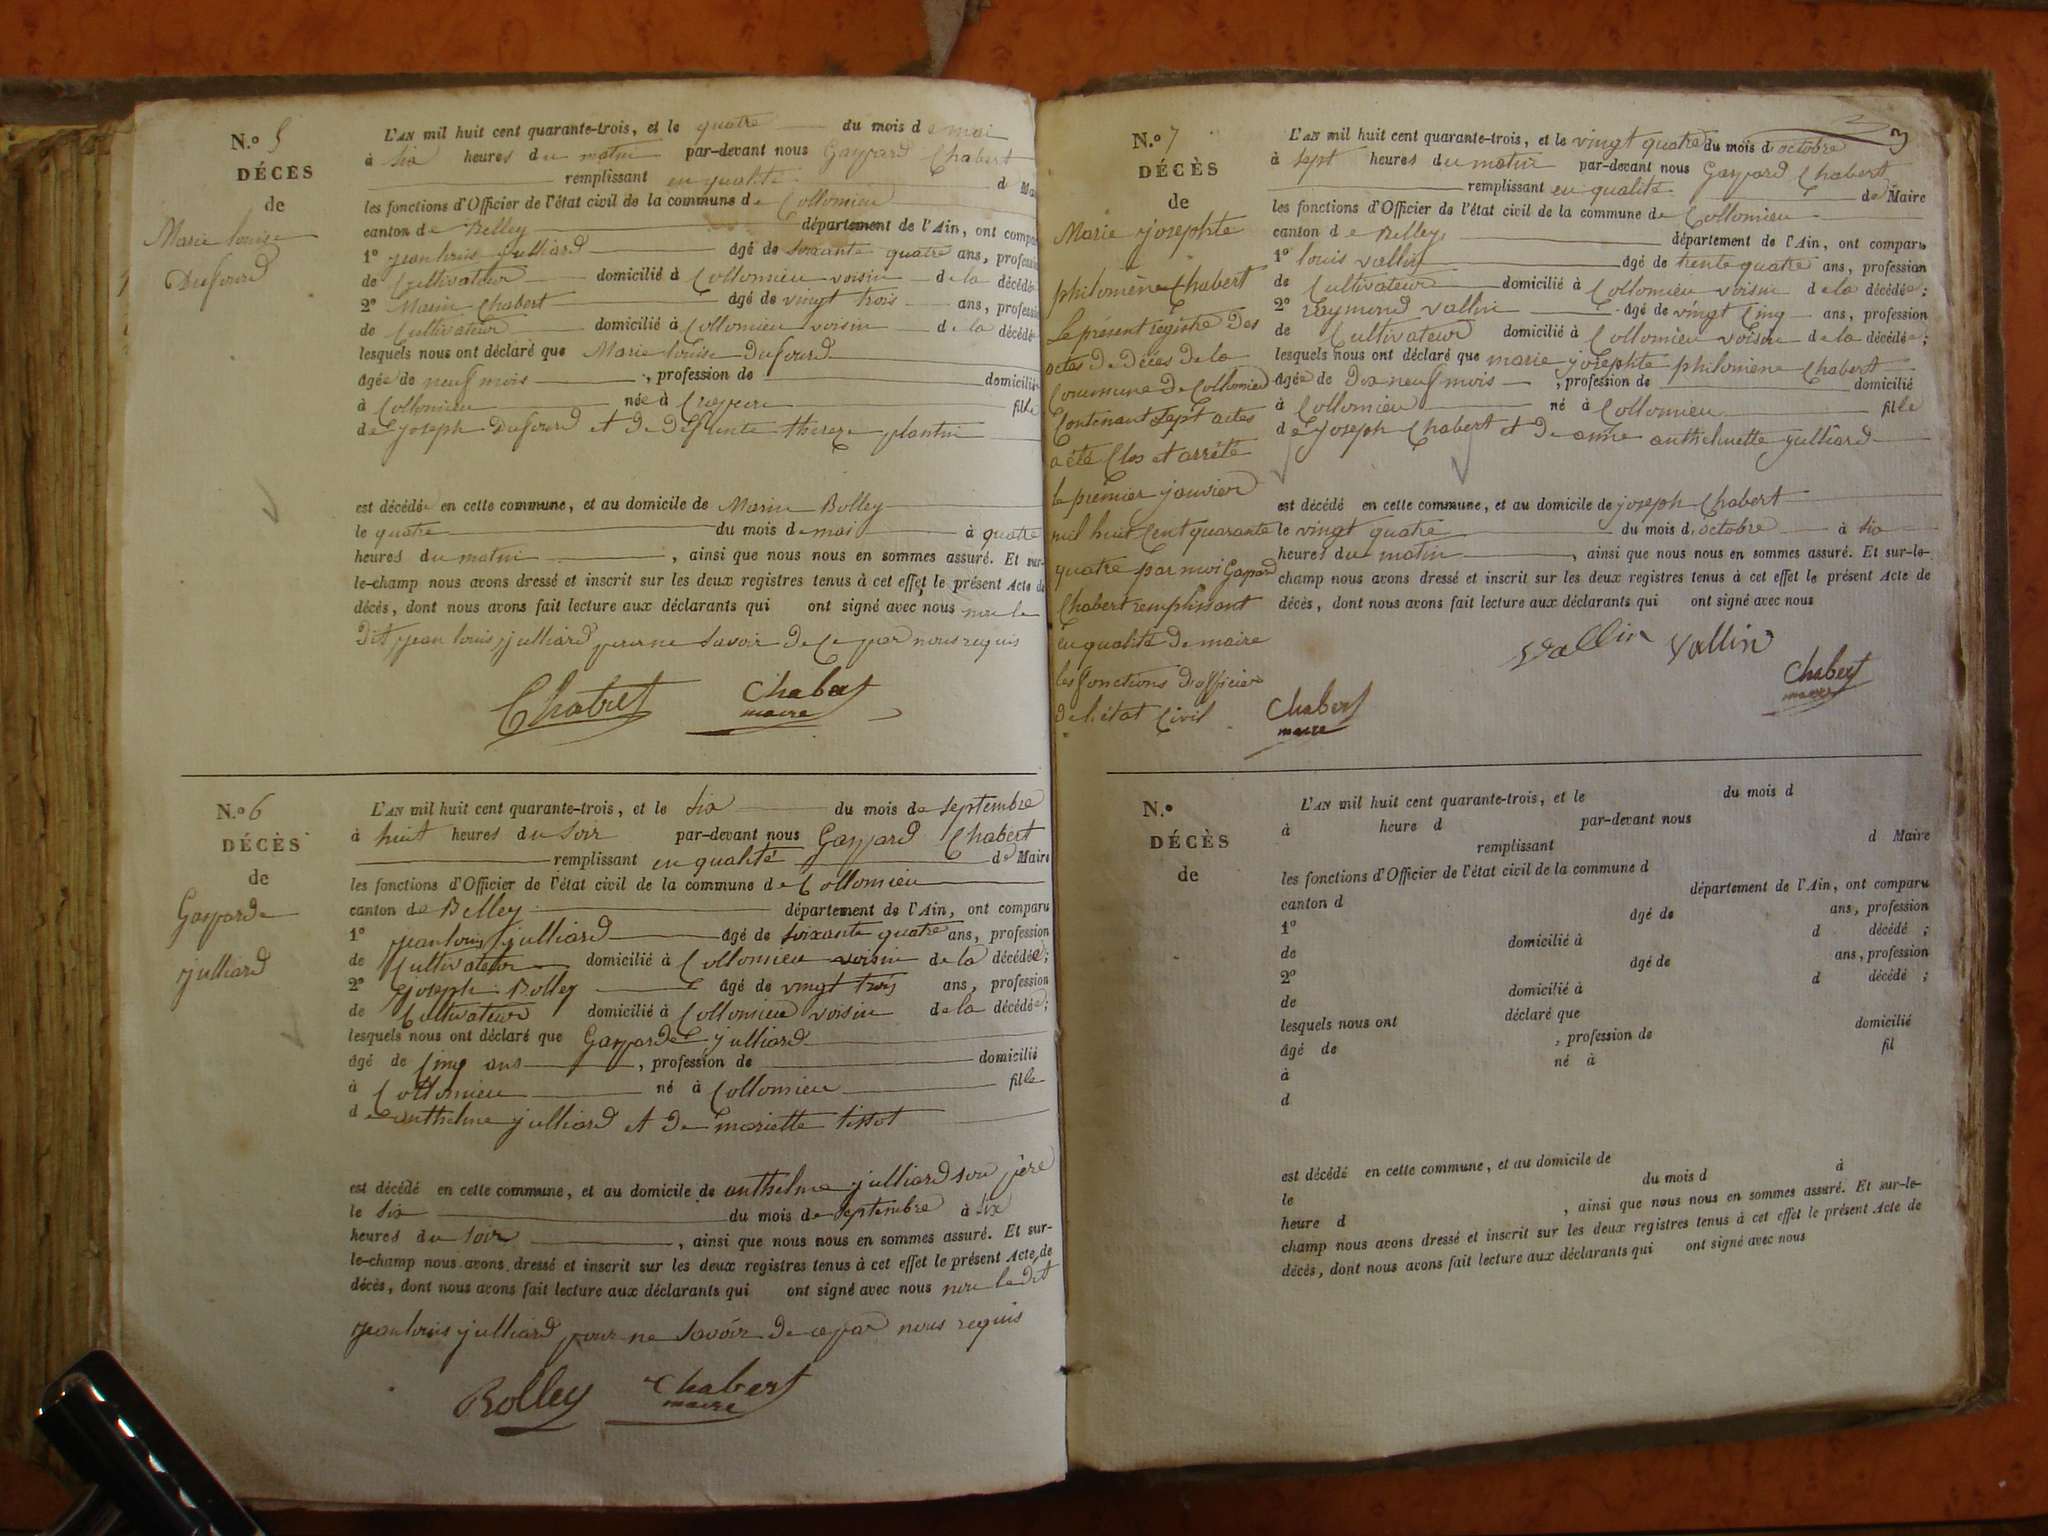 N.o 5
DÉCÈS
de
Marie Louise
Dufourd
L'AN mil huit cent quarante-trois, et le quatre du mois de mai
à six heures du matin par-devant nous Gaspard Chabert
remplissant en qualité de Mai
les fonctions d'Officier de l'état civil de la commune de Collomieu
canton de Belley département de l'Ain, ont compar
1o jean louis julliard âgé de soixante quatre ans, profession
de Cultivateur domicilié à Collomieu voisin de la décédée
2o Marin Chabert âgé de vingt trois ans, profession
de Cultivateur domicilié à Collomieu voisin de la décédée
lesquels nous ont déclaré que Marie Louise Dufourd
âgée de neuf mois, profession de domicilié
à Collomieu née à fille
de joseph Dufourd et de defunte thereze plantin
est décédée en cette commune, et au domicile de Marin Bolley
le quatre du mois de mai à quatre
heures du matin, ainsi que nous nous en sommes assuré. Et sur-
le-champ nous avons dressé et inscrit sur les deux registres tenus à cet effet le présent Acte de
décès, dont nous avons fait lecture aux déclarants qui ont signé avec nous non le
dit jean louis julliard pour ne savoir de ce par nous requis
Chabert Chabert
maire
N.o 6
DÉCÈS
de
Gasparde
julliard
L'AN mil huit cent quarante-trois, et le six du mois de septembre
à huit heures du soir par-devant nous Gaspard Chabert
remplissant en qualité de Maire
les fonctions d'Officier de l'état civil de la commune de Collomieu
canton de Belley département de l'Ain, ont comparu
1o jean louis julliard âgé de soixante quatre ans, profession
de Cultivateur domicilié à Collomieu voisin de la décédée;
2o joseph Bolley âgé de vingt trois ans, profession
de Cultivateur domicilié à Collomieu voisin de la décédée;
lesquels nous ont déclaré que Gasparde julliard
âgé de Cinq ans, profession de domicilié
à Collomieu né à Collomieu fille
de anthelme julliard et de mariette tissot
est décédé en cette commune, et au domicile de anthelme julliard son père
le six du mois de septembre à six
heures du soir, ainsi que nous nous en sommes assuré. Et sur-
le-champ nous avons dressé et inscrit sur les deux registres tenus à cet effet le présent Acte de
décès, dont nous avons fait lecture aux déclarants qui ont signé avec nous non le dit
jean louis julliard pour ne savoir de ce par nous requis
Bolley Chabert
maire
3
N.o 7
DÉCÈS
de
Marie josephte
philomène Chabert
Le présent registre des
actes de Décès de la
Commune de Collomieu
Contenant sept actes
a été Clos et arrêté
le premier janvier
mil huit Cent quarante
quatre par moi Gaspard
Chabert remplissant
en qualité de maire
les fonctions d'officier
de l'état Civil
Chabert
maire
L'AN mil huit cent quarante-trois, et le vingt quatre du mois d'octobre
à sept heures du matin par-devant nous Gaspard Chabert
remplissant en qualité de Maire
les fonctions d'Officier de l'état civil de la commune de Collomieu
canton de Belley département de l'Ain, ont comparu
1o louis vallin âgé de trente quatre ans, profession
de Cultivateur domicilié à Collomieu voisin de la décédée;
2o Raymond vallin âgé de vingt Cinq ans, profession
de Cultivateur domicilié à Collomieu voisin de la décédée;
lesquels nous ont déclaré que marie josephte philomène Chabert
âgée de Dix neuf mois, profession de domicilié
à Collomieu né à Collomieu fille
de joseph Chabert et de anne anthelmette julliard
est décédé en cette commune, et au domicile de joseph Chabert
le vingt quatre du mois d'octobre à six
heures du matin, ainsi que nous nous en sommes assuré. Et sur-le-
champ nous avons dressé et inscrit sur les deux registres tenus à cet effet le présent Acte de
décès, dont nous avons fait lecture aux déclarants qui ont signé avec nous
Vallin Vallin
Chabert
maire
N.o
DÉCÈS
de
L'AN mil huit cent quarante-trois, et le du mois d
à heure d par-devant nous
remplissant d Maire
les fonctions d'Officier de l'état civil de la commune d
canton d département de l'Ain, ont comparu
1o âgé de ans, profession
de domicilié à d décédé ;
2o âgé de ans, profession
de domicilié à d décédé ;
lesquels nous ont déclaré que
âgé de , profession de domicilié
à né à fil
d
est décédé en cette commune, et au domicile de
le du mois d à
heure d , ainsi que nous nous en sommes assuré. Et sur-le-
champ nous avons dressé et inscrit sur les deux registres tenus à cet effet le présent Acte de
décès, dont nous avons fait lecture aux déclarants qui ont signé avec nous